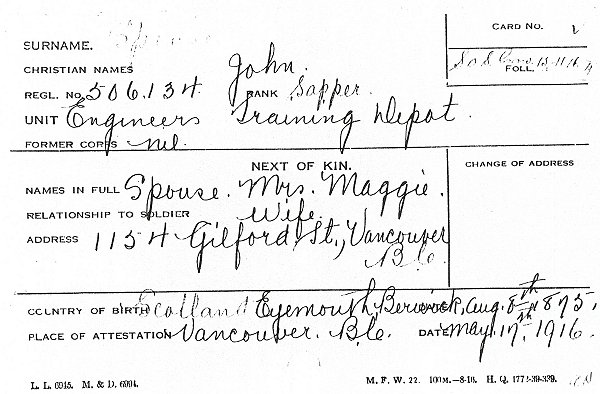 CARD No.
SURNAME.
CHRISTIAN NAMES John.
FOLL.
REGL. No. 506134 RANK Sapper.
UNIT Engineers Training Depot.
FORMER CORPS nil.
NEXT OF KIN.
CHANGE OF ADDRESS
NAMES IN FULL Spouse. Mrs. Maggie.
RELATIONSHIP TO SOLDIER Wife.
ADDRESS 1154 Gilford St., Vancouver
B.C.
COUNTRY OF BIRTH Scotland Eyemouth, Berwick, DATE Aug. 8th 1875.
PLACE OF ATTESTATION Vancouver. B.C. DATE May. 17th, 1916.
L. L. 6945. M. & D. 6994.
M. F. W. 22. 100M.—8-16. H. Q. 1772-39-339.